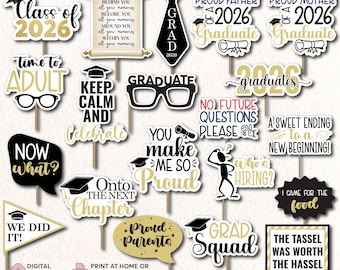 Class of
2026
BEFORE YOU
all your memories
AROUND YOU
all your memories
WITHIN YOU
all your memories
GRAD
2026
PROUD FATHER
OF A
2026
Graduate
PROUD MOTHER
OF A
2026
Graduate
time to
ADULT
KEEP
CALM
AND
Celebrate
GRADUATE
2026
graduates
NO FUTURE
QUESTIONS
PLEASE
A SWEET ENDING
to a
NEW BEGINNING!
NOW
what?
YOU
make
ME SO
Proud
who's
HIRING?
I CAME FOR THE
food
WE DID
IT!
Onto
THE NEXT
Chapter
Proud
Parents
GRAD
Squad
THE TASSEL
WAS WORTH
THE HASSEL
DIGITAL
PRINT AT HOME OR